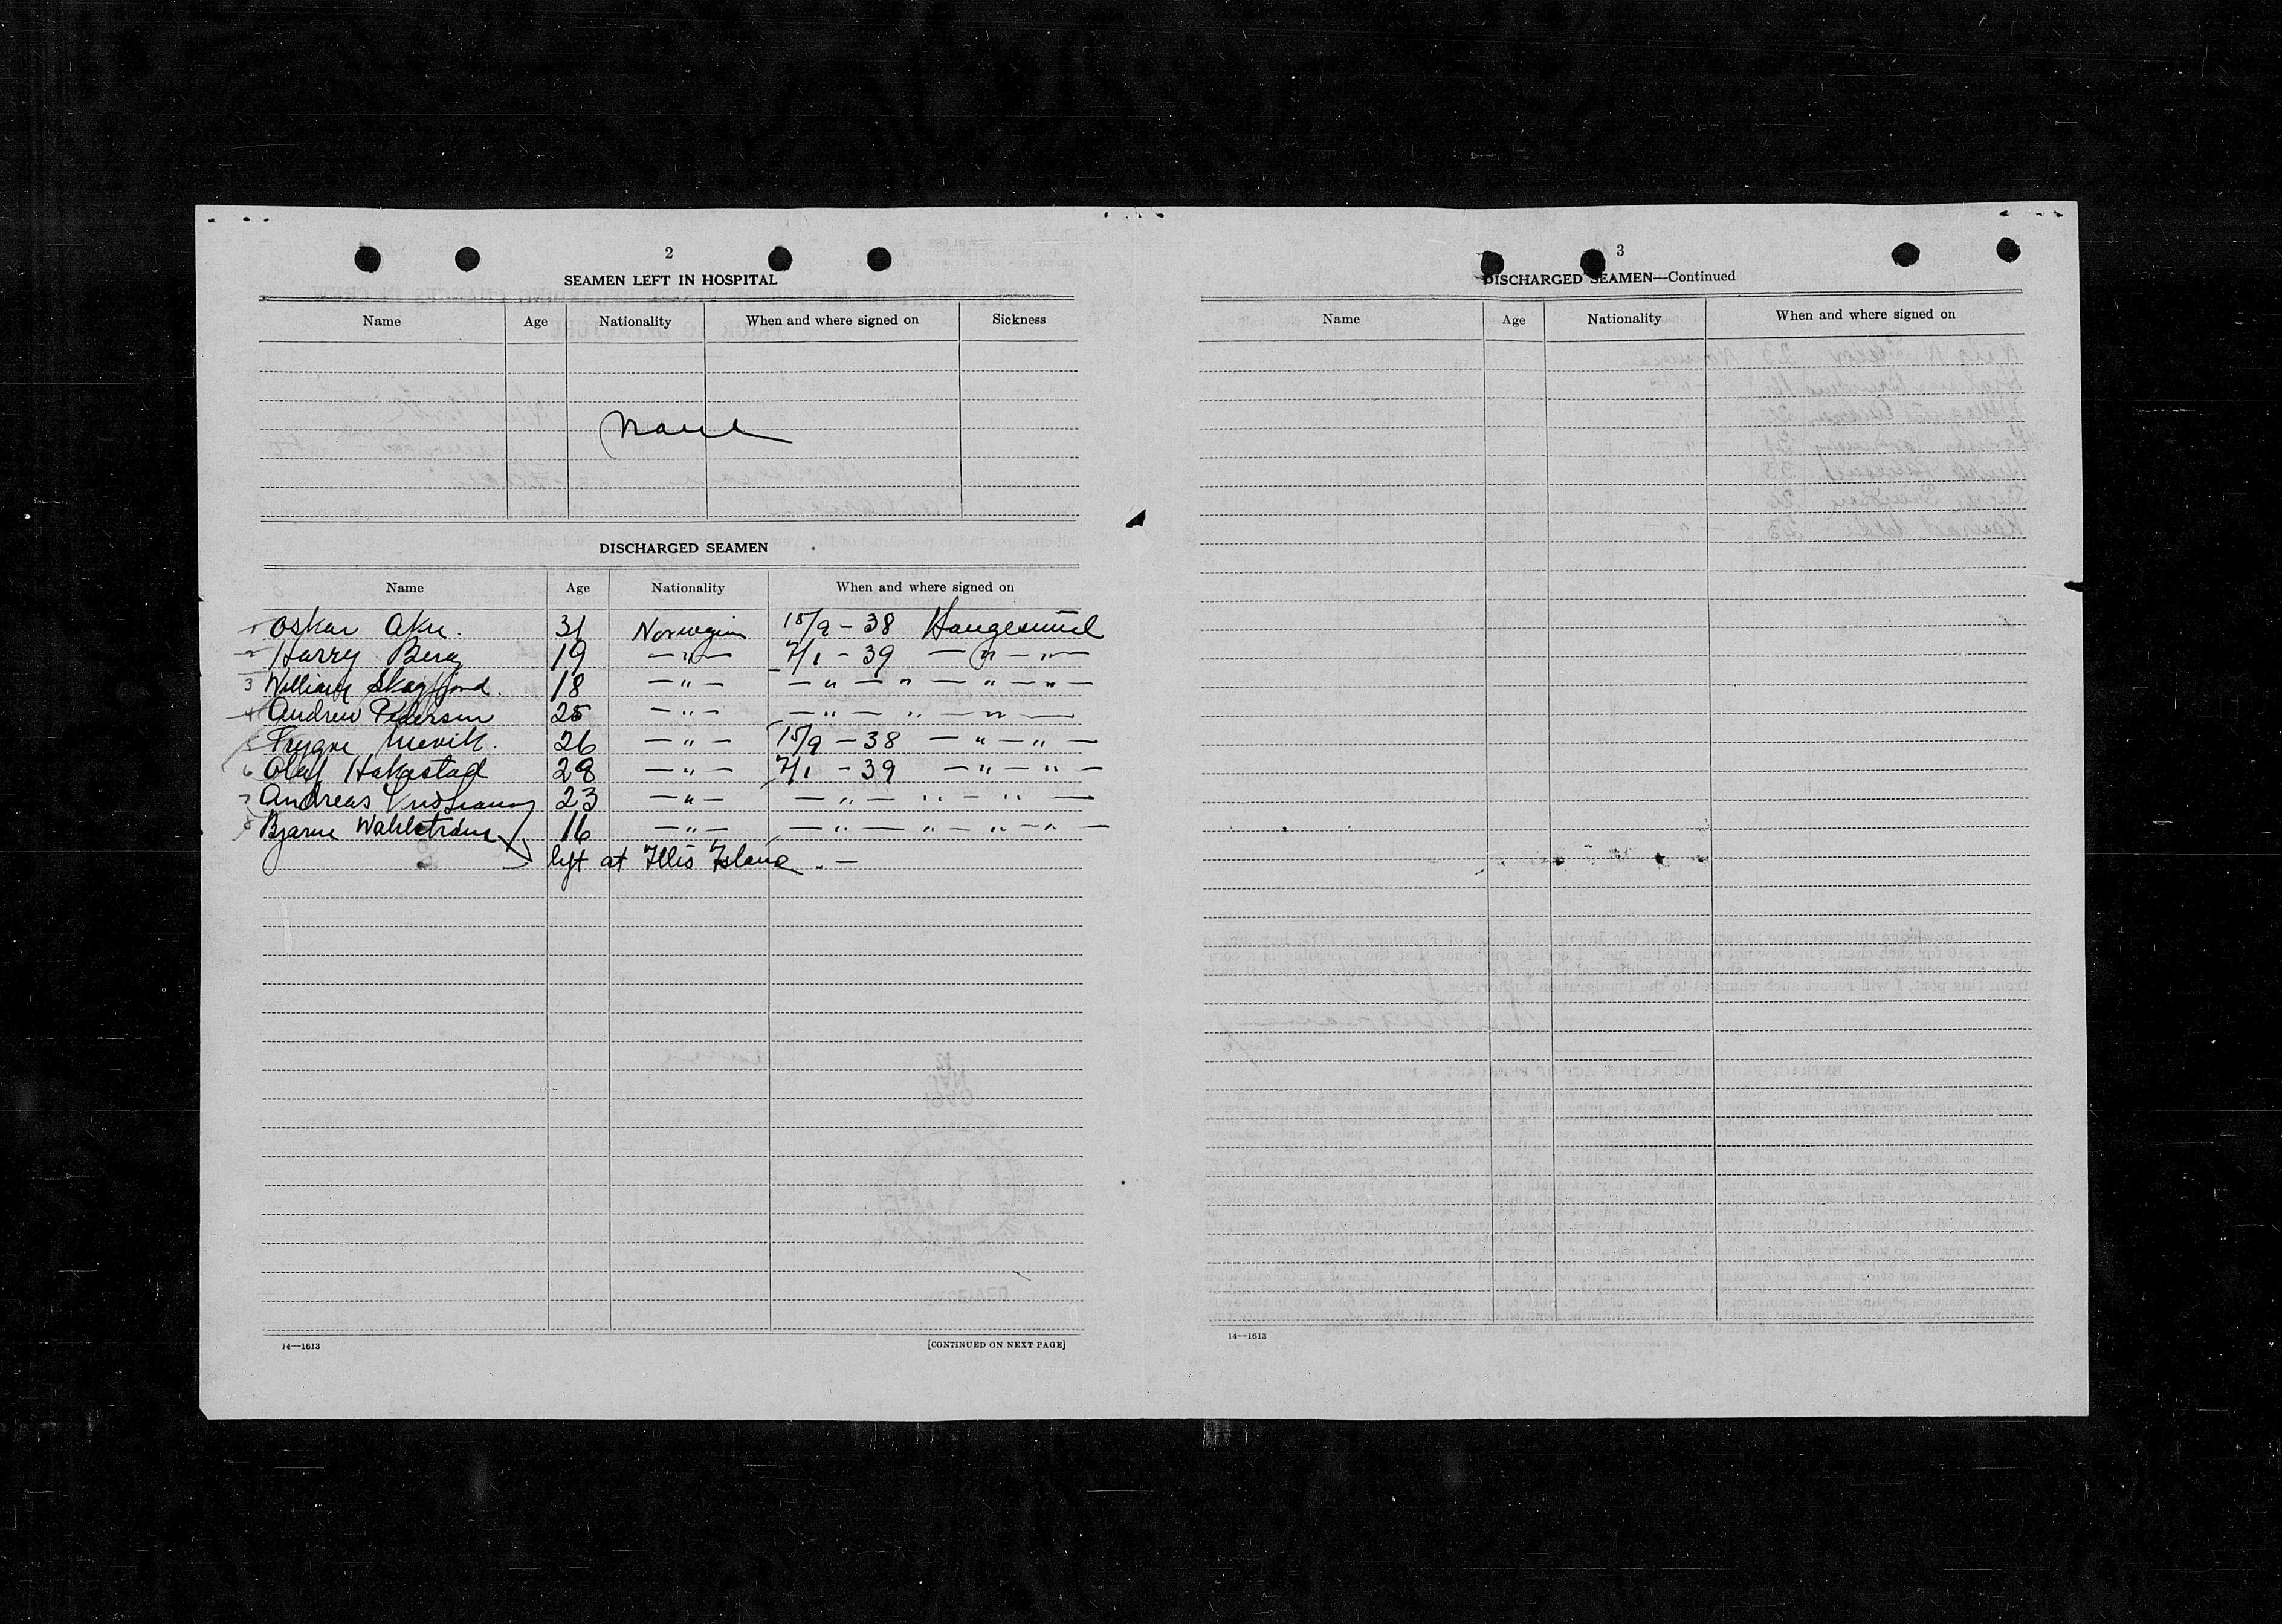 2
SEAMEN LEFT IN HOSPITAL
Name Age Nationality When and where signed on Sickness
None
DISCHARGED SEAMEN
Name Age Nationality When and where signed on
1 Oskar 31 Norwegian 15/9 - 38 Haugesund
2 Harry Berg 19 — " — 7/1 - 39 — " — " —
3 William 18 — " — — " — " — " — " —
4 Andrew Pedersen 25 — " — — " — " — " —
5 Trygve 26 — " — 15/9 - 38 — " — " —
6 Olaf Hakestad 28 — " — 7/1 - 39 — " — " —
7 Andreas 23 — " — — " — " — " —
8 Bjarne Wahlstrøm 16 — " — — " — " — " — " —
left at Illis Island . —
14—1613
[CONTINUED ON NEXT PAGE]
3
DISCHARGED SEAMEN—Continued
Name Age Nationality When and where signed on
14—1613